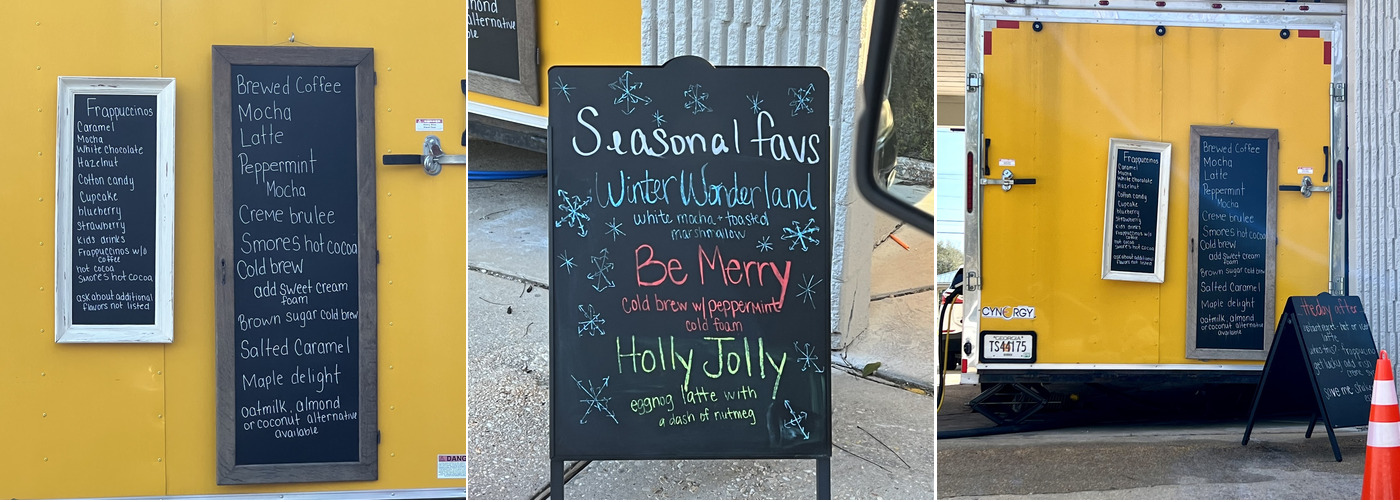 Frappuccinos
Caramel
Mocha
White Chocolate
Hazelnut
Cotton candy
Cupcake
blueberry
Strawberry
kids drinks
Frappuccinos w/o
coffee
hot cocoa
smores hot cocoa
ask about additional
flavors not listed
Brewed Coffee
Mocha
Latte
Peppermint
Mocha
Creme brulee
Smores hot cocoa
Cold brew
add sweet cream
foam
Brown sugar cold brew
Salted Caramel
Maple delight
oatmilk, almond
or coconut alternative
available
DANG
ond
alternative
ble
Seasonal favs
Winter Wonderland
white mocha + toasted
marshmallow
Be Merry
cold brew w/peppermint
cold foam
Holly Jolly
eggnog latte with
a dash of nutmeg
Frappuccinos
Caramel
Mocha
White Chocolate
Hazelnut
Cotton candy
Cupcake
blueberry
Strawberry
kids drinks
Frappuccinos w/o
coffee
hot cocoa
smores hot cocoa
ask about additional
flavors not listed
Brewed Coffee
Mocha
Latte
Peppermint
Mocha
Creme brulee
Smores hot cocoa
Cold brew
add sweet cream
foam
Brown sugar cold brew
Salted Caramel
Maple delight
oatmilk, almond
or coconut alternative
available
CYNERGY
GEORGIA
TS44175
the day after
latte